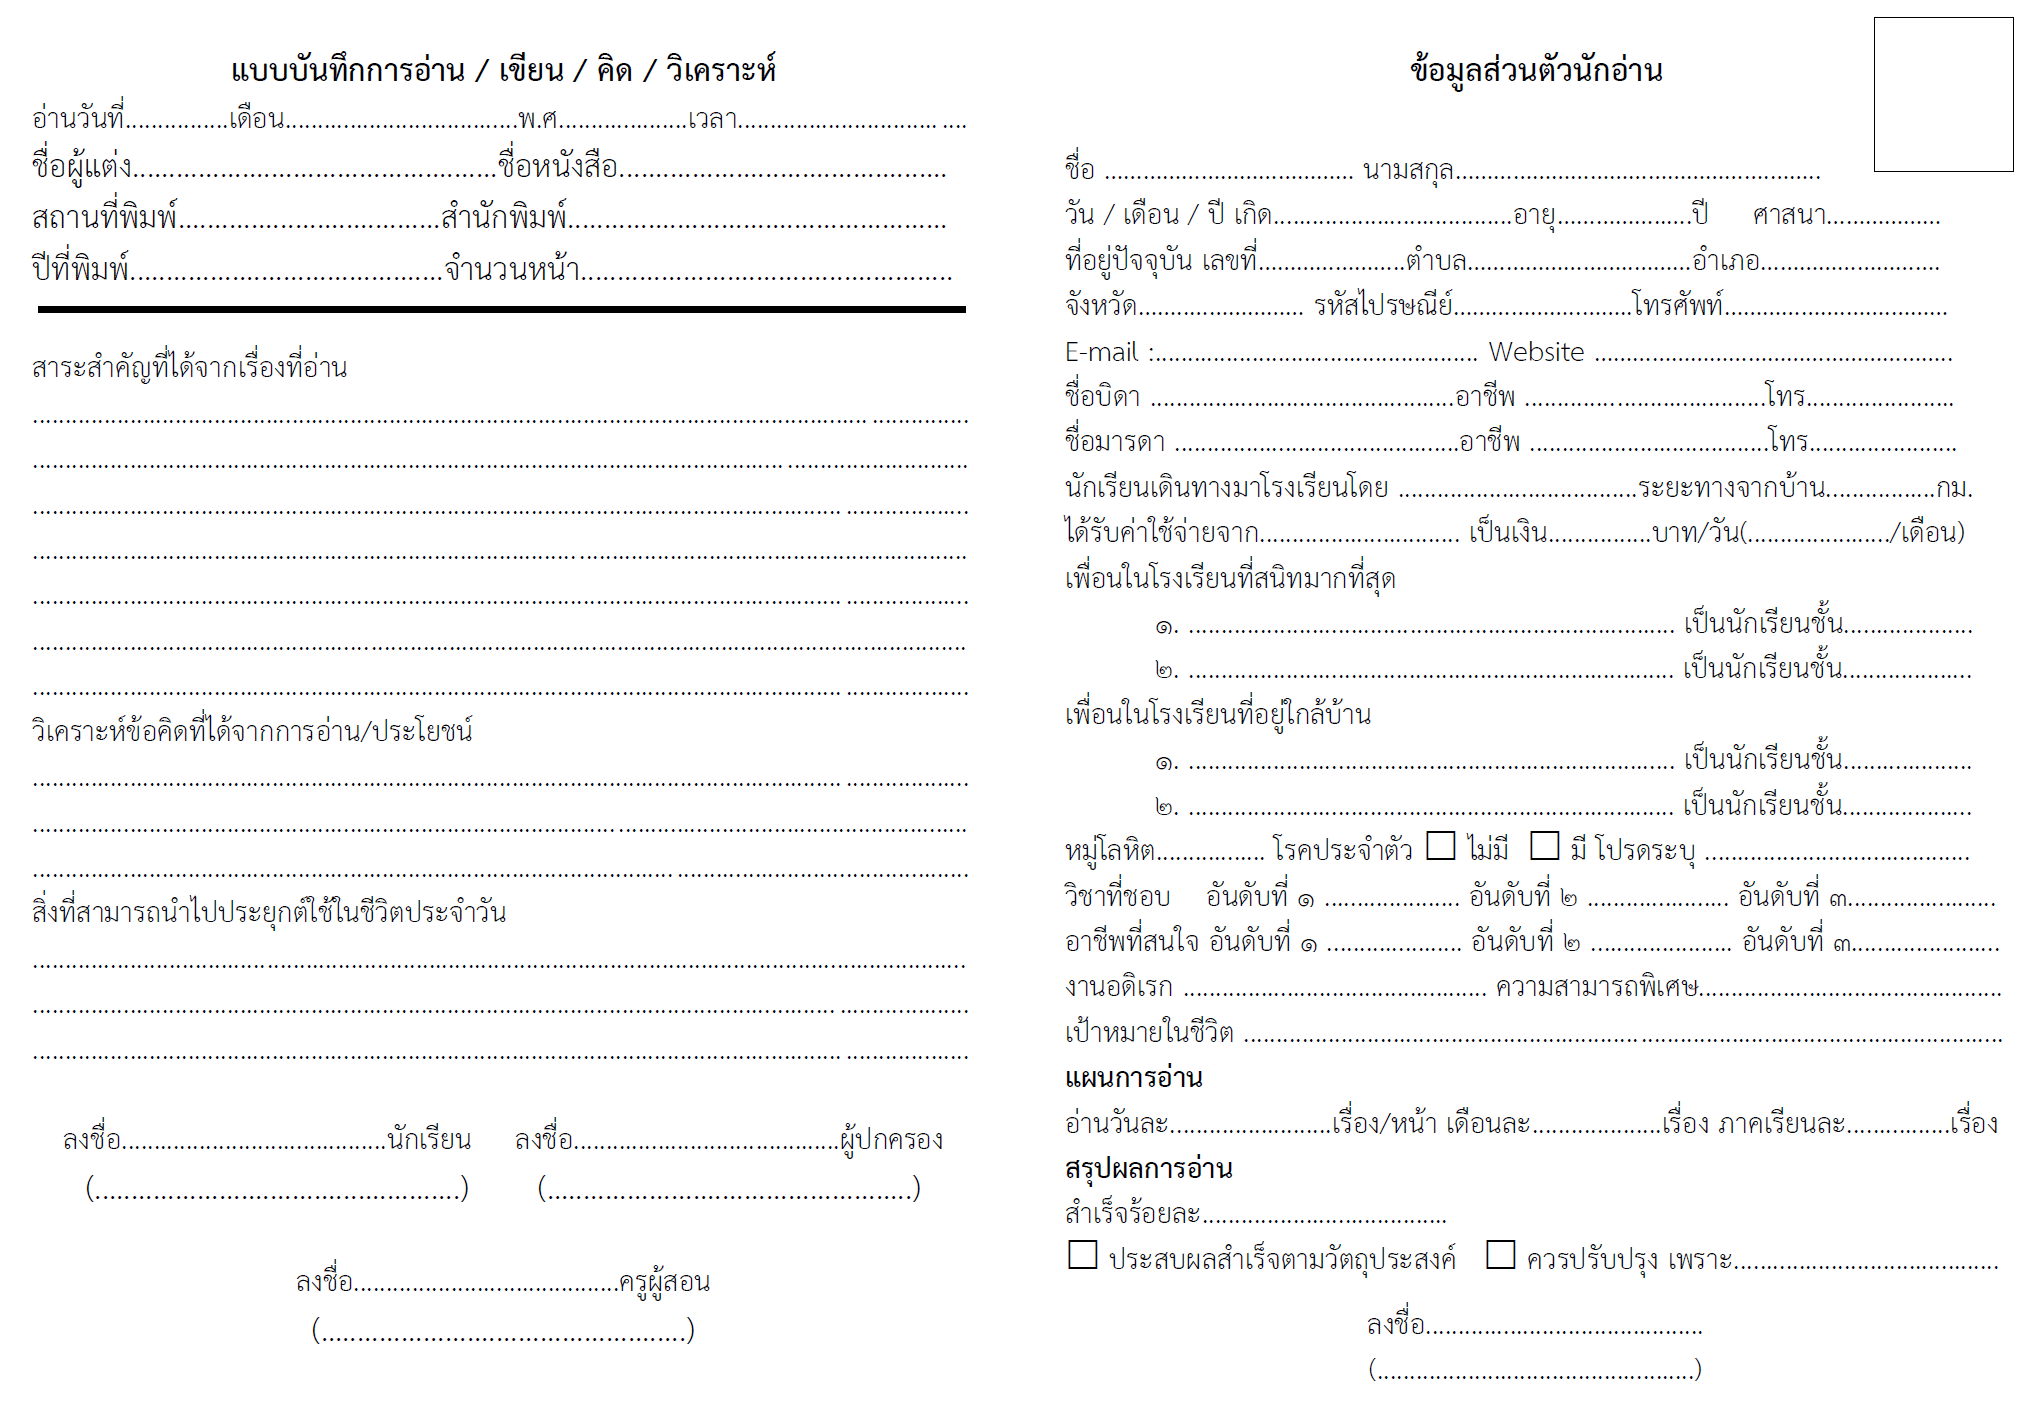 แบบบันทึกการอ่าน / เขียน / คิด / วิเคราะห์
อ่านวันที่................เดือน....................................พ.ศ....................เวลา...................................
ชื่อผู้แต่ง..................................................ชื่อหนังสือ.............................................
สถานที่พิมพ์....................................สำนักพิมพ์....................................................
ปีที่พิมพ์...........................................จำนวนหน้า...................................................
สาระสำคัญที่ได้จากเรื่องที่อ่าน
................................................................................
................................................................................
................................................................................
................................................................................
................................................................................
................................................................................
................................................................................
วิเคราะห์ข้อคิดที่ได้จากการอ่าน/ประโยชน์
................................................................................
................................................................................
................................................................................
สิ่งที่สามารถนำไปประยุกต์ใช้ในชีวิตประจำวัน
................................................................................
................................................................................
................................................................................
ลงชื่อ.........................................นักเรียน ลงชื่อ.........................................ผู้ปกครอง
(..................................................) (..................................................)
ลงชื่อ.........................................ครูผู้สอน
(..................................................)
ข้อมูลส่วนตัวนักอ่าน
ชื่อ ....................................... นามสกุล.........................................................
วัน / เดือน / ปี เกิด.....................................อายุ.....................ปี ศาสนา..................
ที่อยู่ปัจจุบัน เลขที่.......................ตำบล...................................อำเภอ............................
จังหวัด.......................... รหัสไปรษณีย์............................โทรศัพท์...................................
E-mail :.................................................. Website ........................................................
ชื่อบิดา ...............................................อาชีพ .....................................โทร.......................
ชื่อมารดา ............................................อาชีพ .....................................โทร.......................
นักเรียนเดินทางมาโรงเรียนโดย .....................................ระยะทางจากบ้าน.................กม.
ได้รับค่าใช้จ่ายจาก............................... เป็นเงิน................บาท/วัน(....................../เดือน)
เพื่อนในโรงเรียนที่สนิทมากที่สุด
๑. ........................................................................... เป็นนักเรียนชั้น....................
๒. ........................................................................... เป็นนักเรียนชั้น....................
เพื่อนในโรงเรียนที่อยู่ใกล้บ้าน
๑. ........................................................................... เป็นนักเรียนชั้น....................
๒. ........................................................................... เป็นนักเรียนชั้น....................
หมู่โลหิต................. โรคประจำตัว ☐ ไม่มี ☐ มี โปรดระบุ .........................................
วิชาที่ชอบ อันดับที่ ๑ ..................... อันดับที่ ๒ ...................... อันดับที่ ๓.......................
อาชีพที่สนใจ อันดับที่ ๑ ..................... อันดับที่ ๒ ...................... อันดับที่ ๓.......................
งานอดิเรก ............................................... ความสามารถพิเศษ...............................................
เป้าหมายในชีวิต ................................................................................
แผนการอ่าน
อ่านวันละ.........................เรื่อง/หน้า เดือนละ....................เรื่อง ภาคเรียนละ................เรื่อง
สรุปผลการอ่าน
สำเร็จร้อยละ......................................
☐ ประสบผลสำเร็จตามวัตถุประสงค์ ☐ ควรปรับปรุง เพราะ.........................................
ลงชื่อ...........................................
(.................................................)